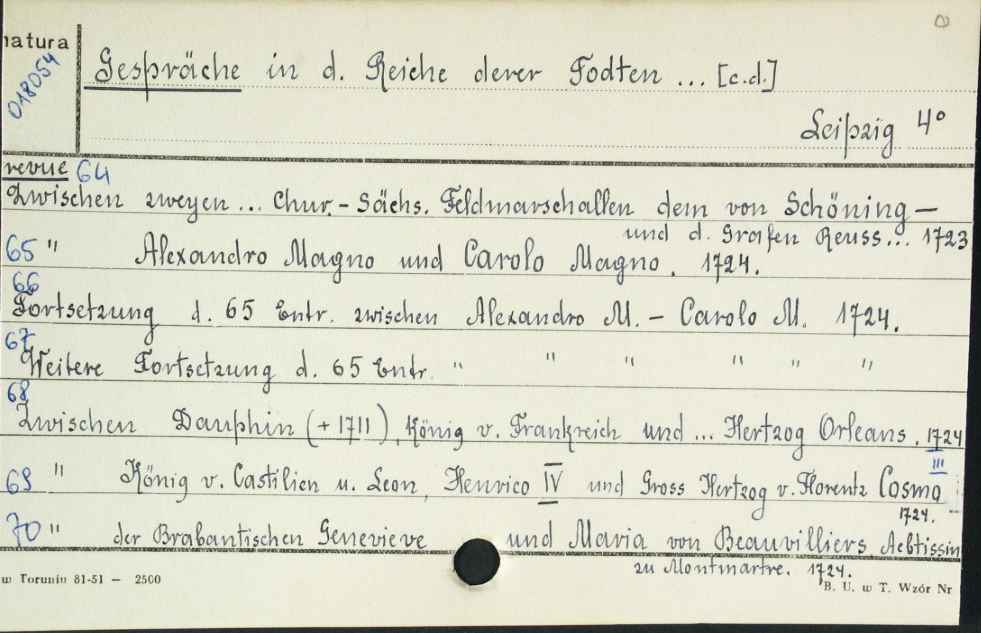 natura
018054
Gespräche in d. Reiche derer Todten ... [c.d.]
Leipzig 4°
revue 64
Zwischen zweyen ... Chur.- Sächs. Feldmarschallen dem von Schöning —
und d. Grafen Reuss... 1723
65 " Alexandro Magno und Carolo Magno. 1724.
66
Fortsetzung d. 65 Entr. zwischen Alexandro M. - Carolo M. 1724.
67
Weitere Fortsetzung d. 65 Entr. " " " " " "
68
Zwischen Dauphin (+ 1711), König v. Frankreich und ... Hertzog Orleans. 1724
69 " König v. Castilien u. Leon, Henrico IV und Gross Hertzog v. Florentz Cosmo III
1724.
70 " der Brabantischen Genevieve und Maria von Beauvilliers Aebtissin
zu Montmartre. 1724.
w Toruniu 81-51 — 2500
B. U. w T. Wzór Nr